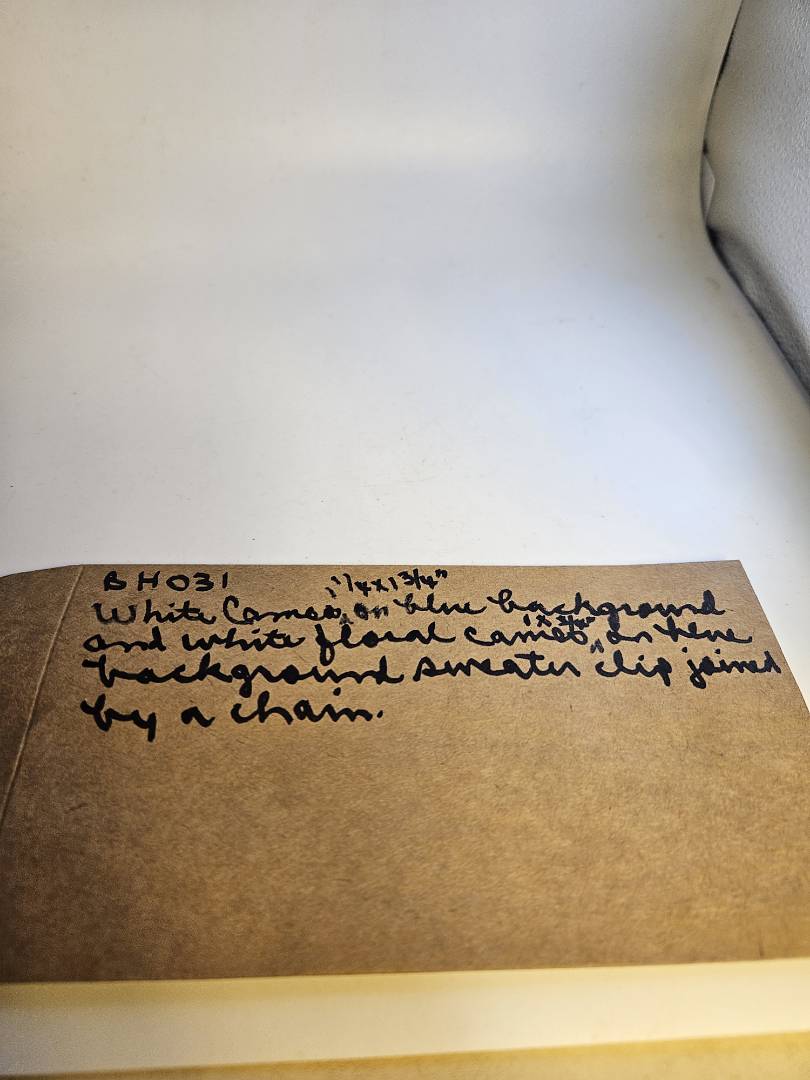 BH031
1 1/4 x 1 3/4"
White Cameo ^ on blue background
1 x 3/4"
and white floral cameo ^ on blue
background sweater clip joined
by a chain.